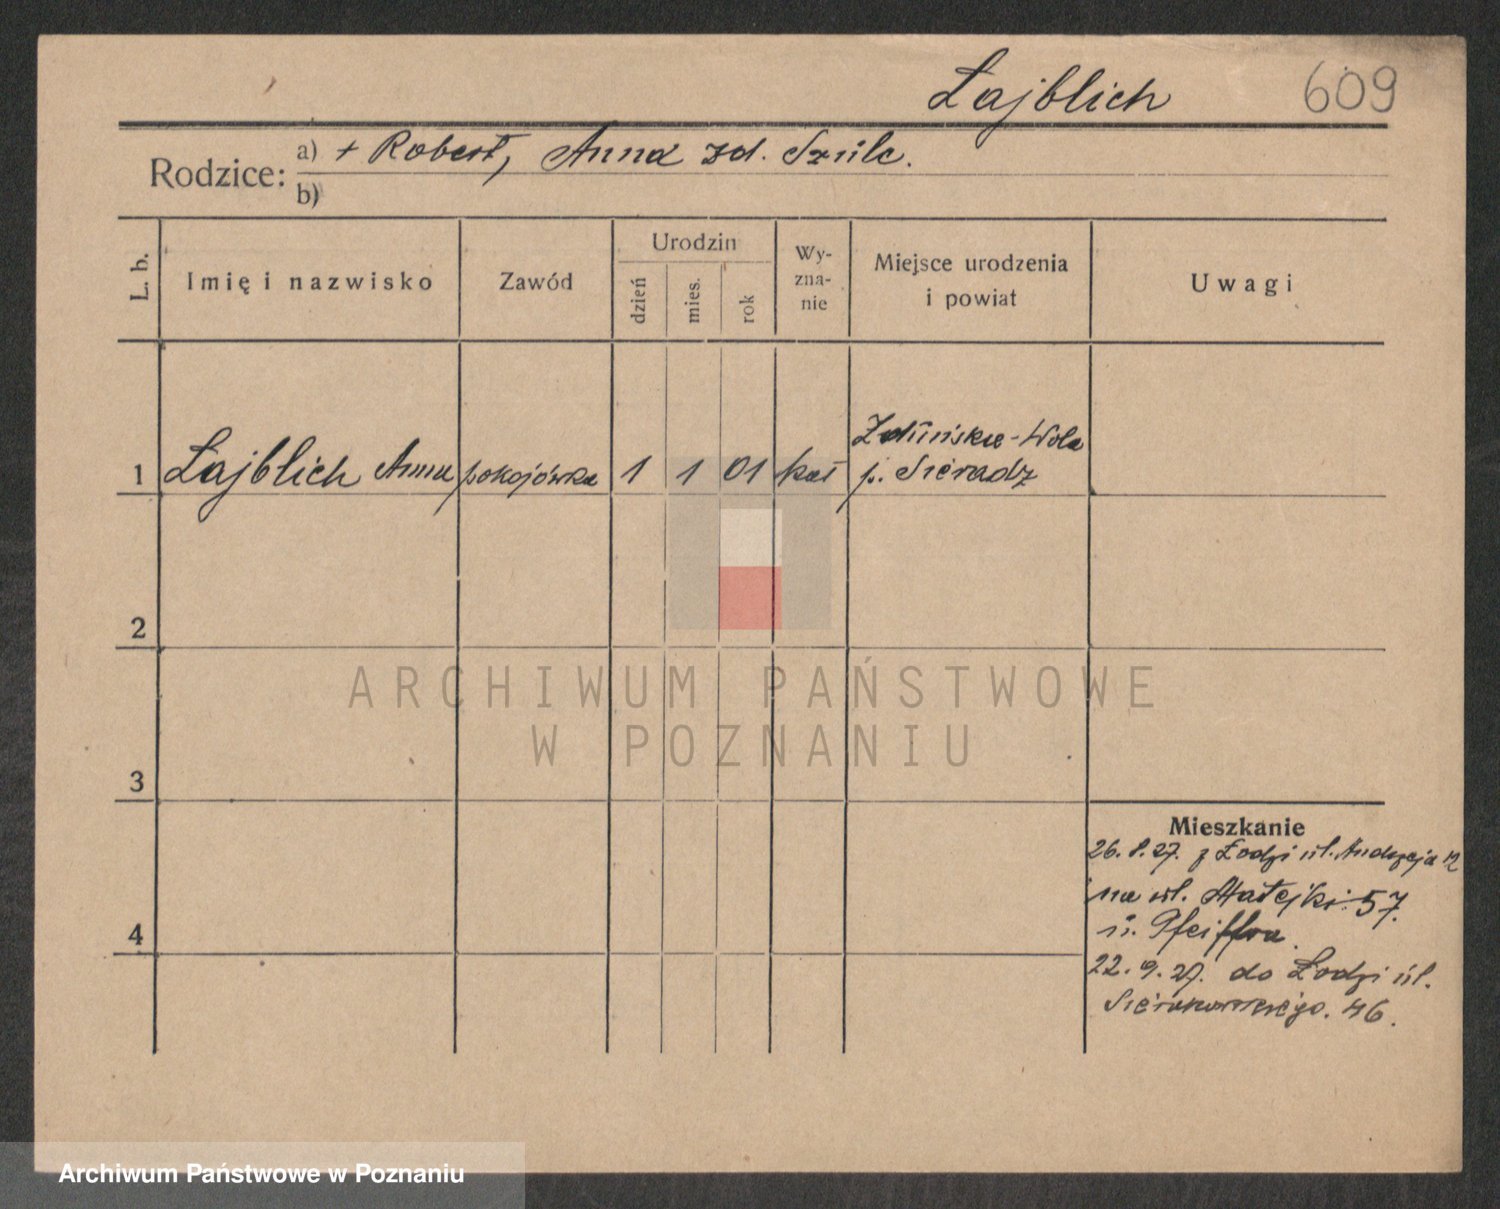 Łajblich 609
Rodzice: a) + Robert, Anna zd. Szulc.
b)
L. b. Imię i nazwisko Zawód Urodzin dzień mies. rok Wy-zna-nie Miejsce urodzenia i powiat Uwagi
Zduńska-Wola
1 Łajblich Anna pokojówka 1 1 01 kat p. Sieradz
2
ARCHIWUM PAŃSTWOWE
W POZNANIU
3
Mieszkanie
26.8.27. z Łodzi ul. Andrzeja 12
na ul. Matejki 57.
u. Pfeiffra.
4
22.9.27. do Łodzi ul.
46.
Archiwum Państwowe w Poznaniu